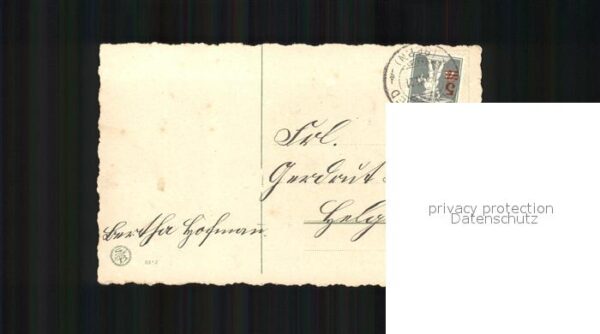 Frl.
Gerdrut
Helg
Bertha Hofmann
5
privacy protection
Datenschutz